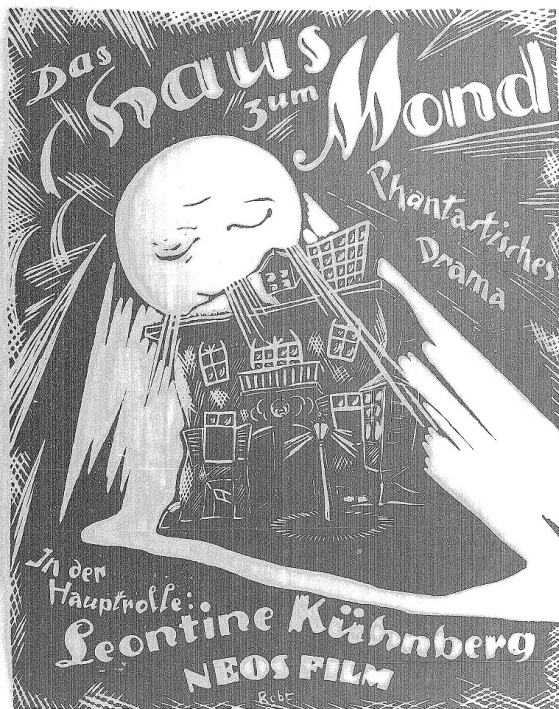 Das Haus
zum Mond
Phantastisches
Drama
In der
Hauptrolle:
Leontine Kühnberg
NEOS FILM